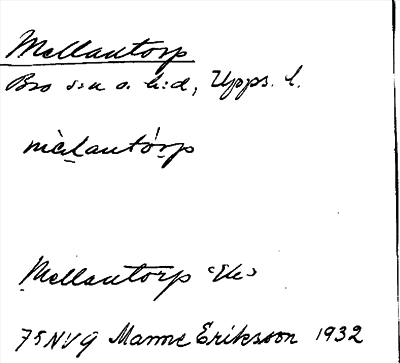 Mellantorp
Bro s:n o. h:d, Upps. l.
mèlantórp
Mellantorp
75NV9 Manne Eriksson 1932